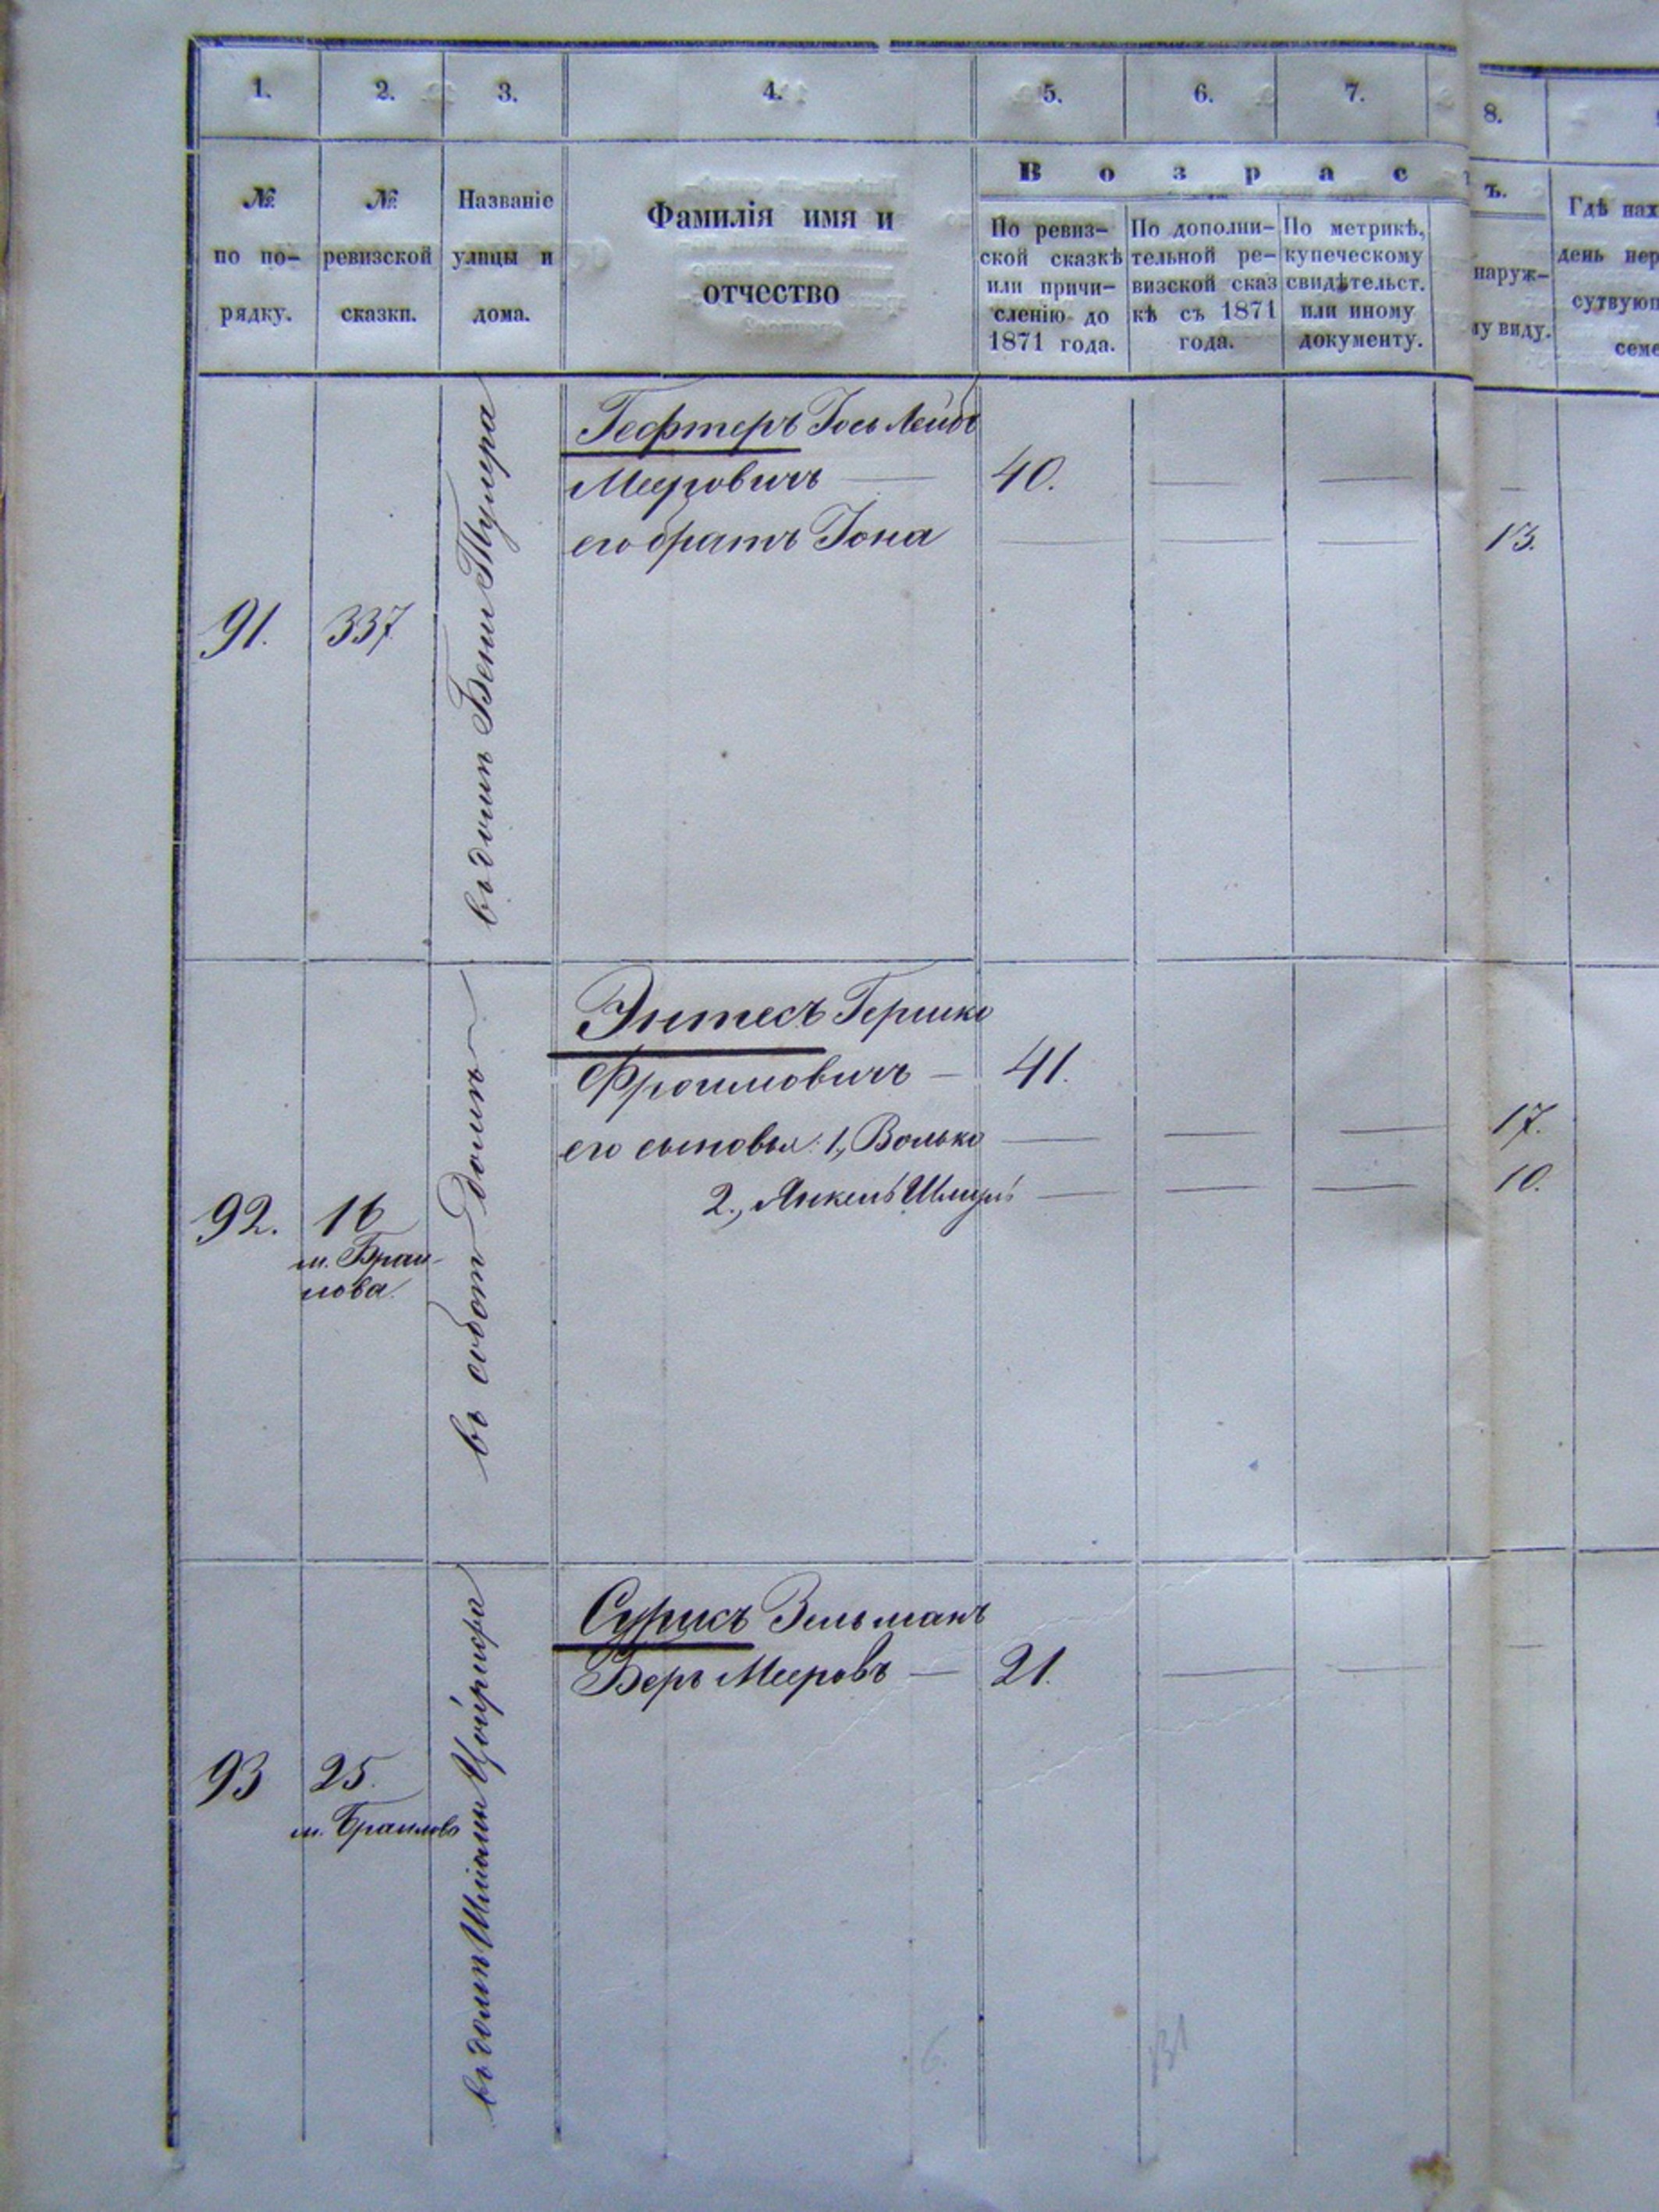 1. 2. 3. 4. 5. 6. 7. 8.
№ по порядку.
№ ревизской сказки.
Названіе улицы и дома.
Фамилія имя и
отчество
Возрас
ъ.
По ревиз-
ской сказкѣ
или причи-
сленію до
1871 года.
По дополни-
тельной ре-
визской сказ
кѣ съ 1871
года.
По метрикѣ,
купеческому
свидѣтельст.
или иному
документу.
наруж-
му виду.
Гдѣ нах
день пер
сутвуюп
семе
91.
337
въ домѣ Бени Тулера
Гефтеръ Іось Лейбъ
Мееровичъ — 40. — — —
его братъ Іона — — — 13.
92.
16
м. Браи-
лова.
въ собст домѣ
Энтесъ Гершко
Фроимовичъ — 41.
его сыновья: 1, Волько — — — 17.
2., Янкель Шмуль — — — 10.
93
25.
м. Браилово
въ домѣ Шмілы
Сурисъ Зельманъ
Беръ Мееровъ — 21. — — —